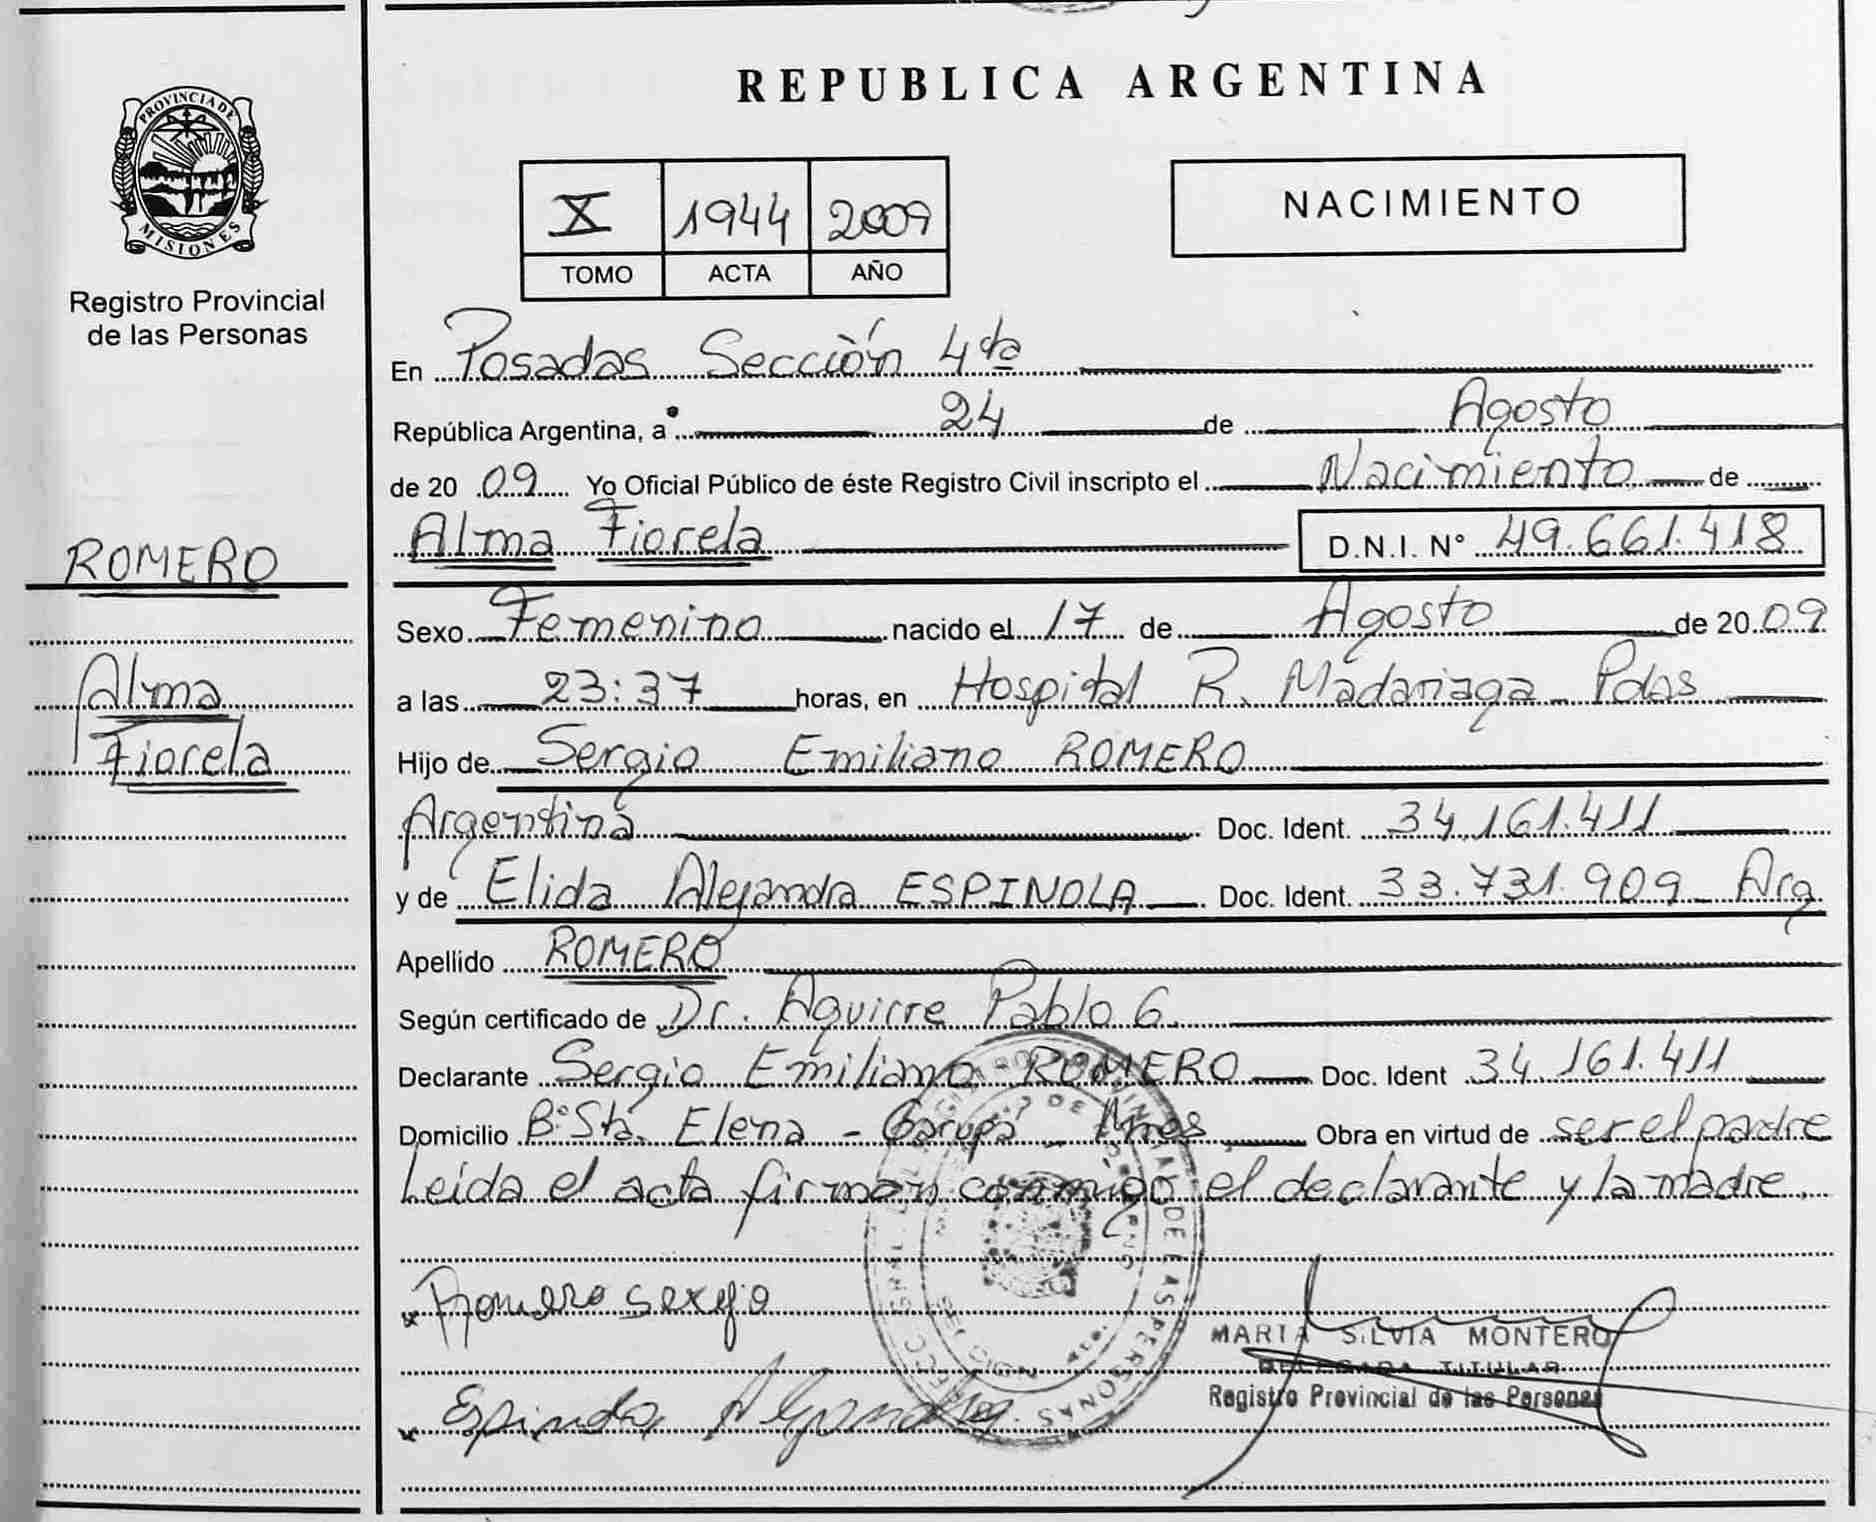 PROVINCIA DE MISIONES
Registro Provincial
de las Personas
ROMERO
Alma
Fiorela
REPUBLICA ARGENTINA
X 1944 2009
TOMO ACTA AÑO
NACIMIENTO
En Posadas Sección 4ta
República Argentina, a 24 de Agosto
de 20 09 Yo Oficial Público de éste Registro Civil inscripto el Nacimiento de
Alma Fiorela D.N.I. N° 49.661.418
Sexo Femenino nacido el 17 de Agosto de 20 09
a las 23:37 horas, en Hospital R. Madariaga Pdas
Hijo de Sergio Emiliano ROMERO
Argentina Doc. Ident. 34.161.411
y de Elida Alejandra ESPINOLA Doc. Ident. 33.731.909 Arg
Apellido ROMERO
Según certificado de Dr. Aguirre Pablo G.
Declarante Sergio Emiliano ROMERO Doc. Ident 34.161.411
Domicilio B° Sta. Elena - Garupá - Mnes Obra en virtud de ser el padre
Leída el acta firman conmigo el declarante y la madre.
x Romero sergio
x Espindola Alejandra
MARTA SILVIA MONTERO
DELEGADA TITULAR
Registro Provincial de las Personas